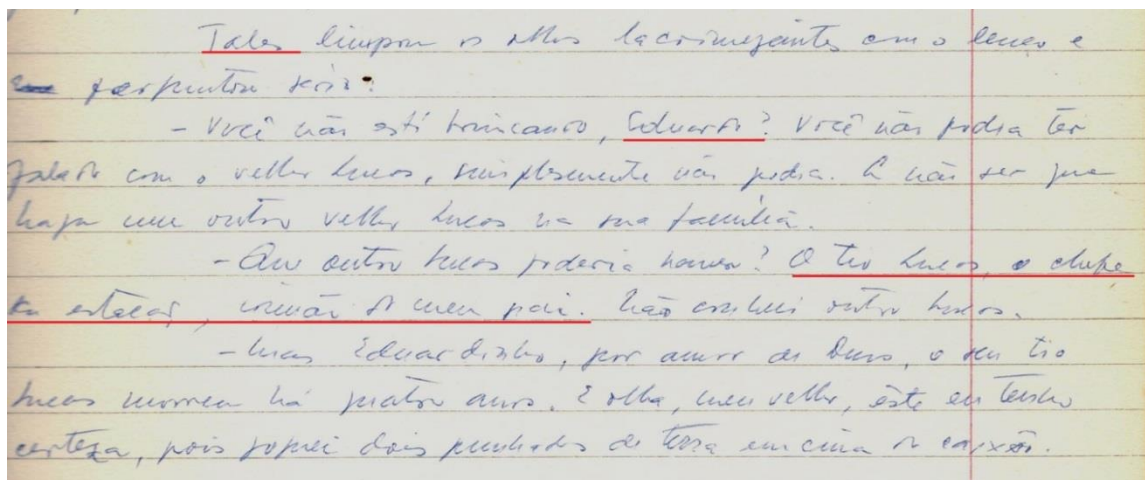 Tales limpou os olhos lacrimejantes com o lenço e
perguntou sério:
- Você não está brincando, Eduardo? Você não podia ter
falado com o velho Lucas, simplesmente não podia. A não ser que
haja um outro velho Lucas na sua família.
- Que outro Lucas poderia haver? O tio Lucas, o chefe
da estação, irmão do meu pai. Não conheci outro Lucas.
- Mas Eduardinho, por amor de Deus, o seu tio
Lucas morreu há quatro anos. E olha, meu velho, êste eu tenho
certeza, pois joguei dois punhados de terra em cima do caixão.